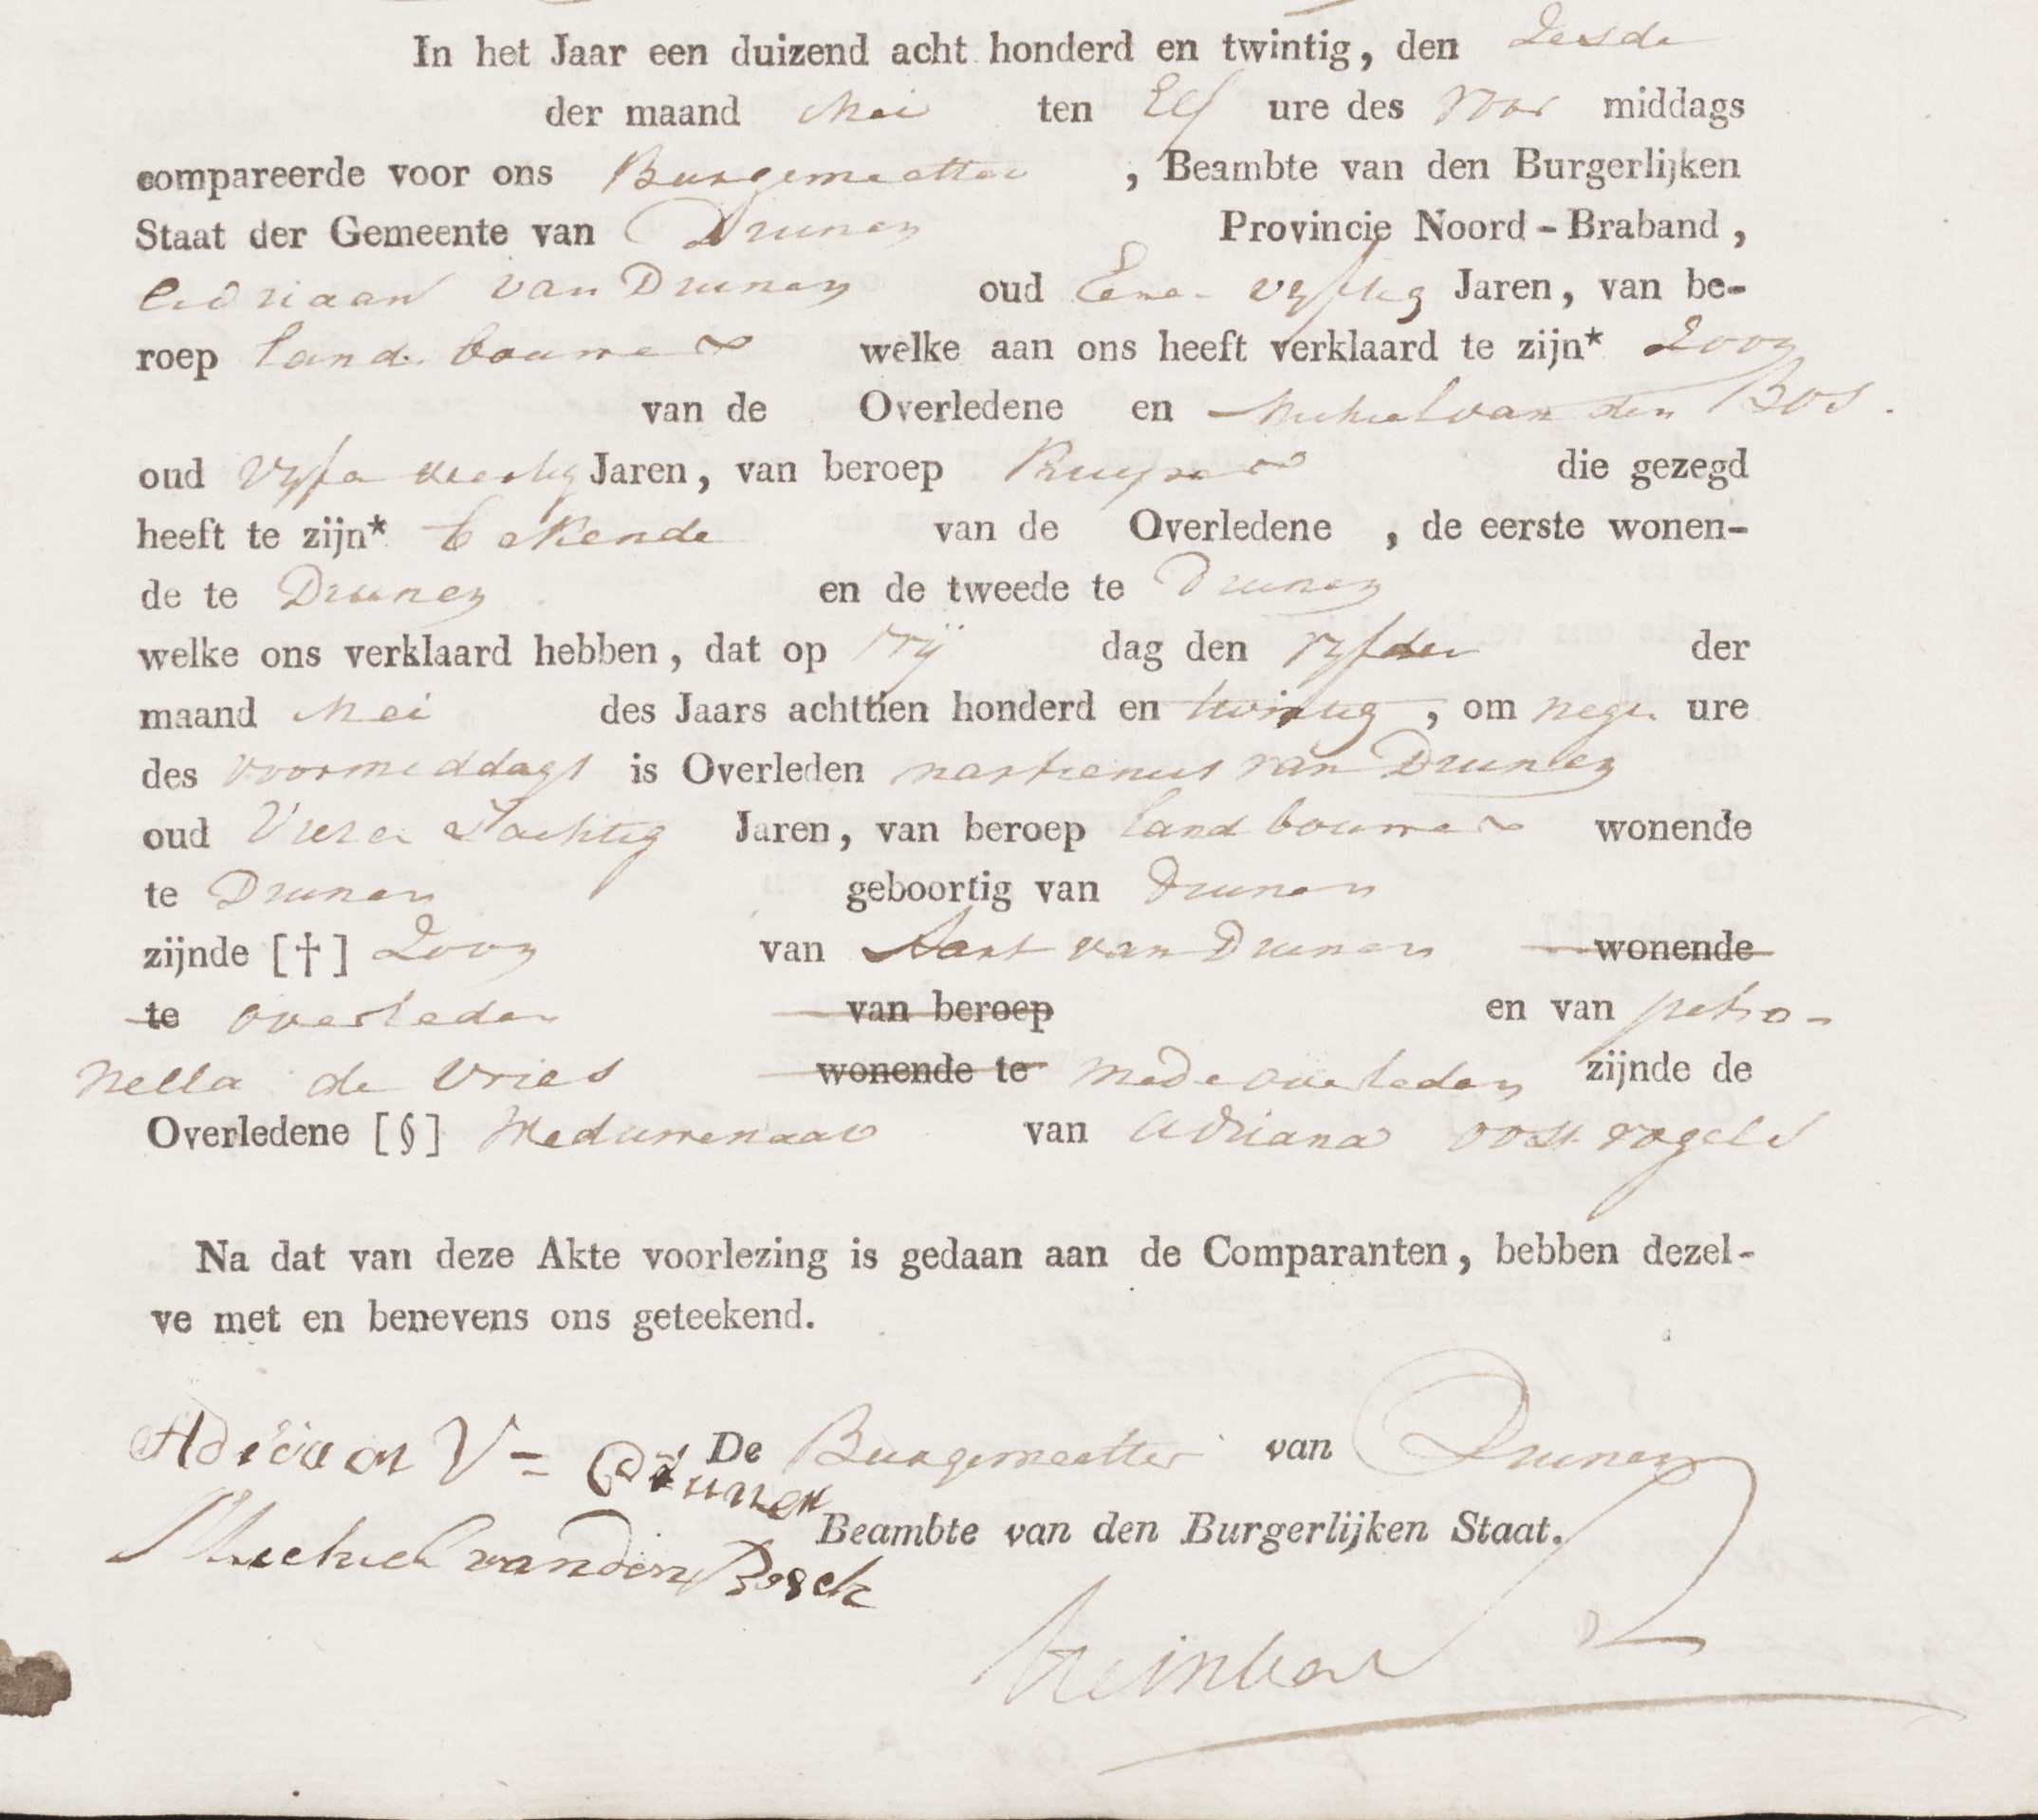 In het Jaar een duizend acht honderd en twintig, den Zesde
der maand Mei ten Elf ure des voor middags
compareerde voor ons Burgemeester , Beambte van den Burgerlijken
Staat der Gemeente van Drunen Provincie Noord-Braband,
Adriaan van Drunen oud Eene vyftig Jaren, van be-
roep land bouwer welke aan ons heeft verklaard te zijn* Zoon
van de Overledene en Michiel van den Bos.
oud vyfa veertig Jaren, van beroep Kuyper die gezegd
heeft te zijn* bekende van de Overledene , de eerste wonen-
de te Drunen en de tweede te Drunen
welke ons verklaard hebben, dat op vrij dag den vyfden der
maand Mei des Jaars achttien honderd en twintig , om nege. ure
des voormiddags is Overleden martienus van Drunen
oud Vier a Tachtig Jaren, van beroep land bouwer wonende
te Drunen geboortig van Drunen
zijnde [†] Zoon van Aart van Drunen wonende
te overleden van beroep en van petro-
nella de Vries wonende te mede overleden zijnde de
Overledene [§] Weduwenaar van Adriana oost vogels
Na dat van deze Akte voorlezing is gedaan aan de Comparanten, bebben dezel-
ve met en benevens ons geteekend.
Adriaan V= Drunen De Burgemeester van Drunen
Michiel van den Bosch Beambte van den Burgerlijken Staat.